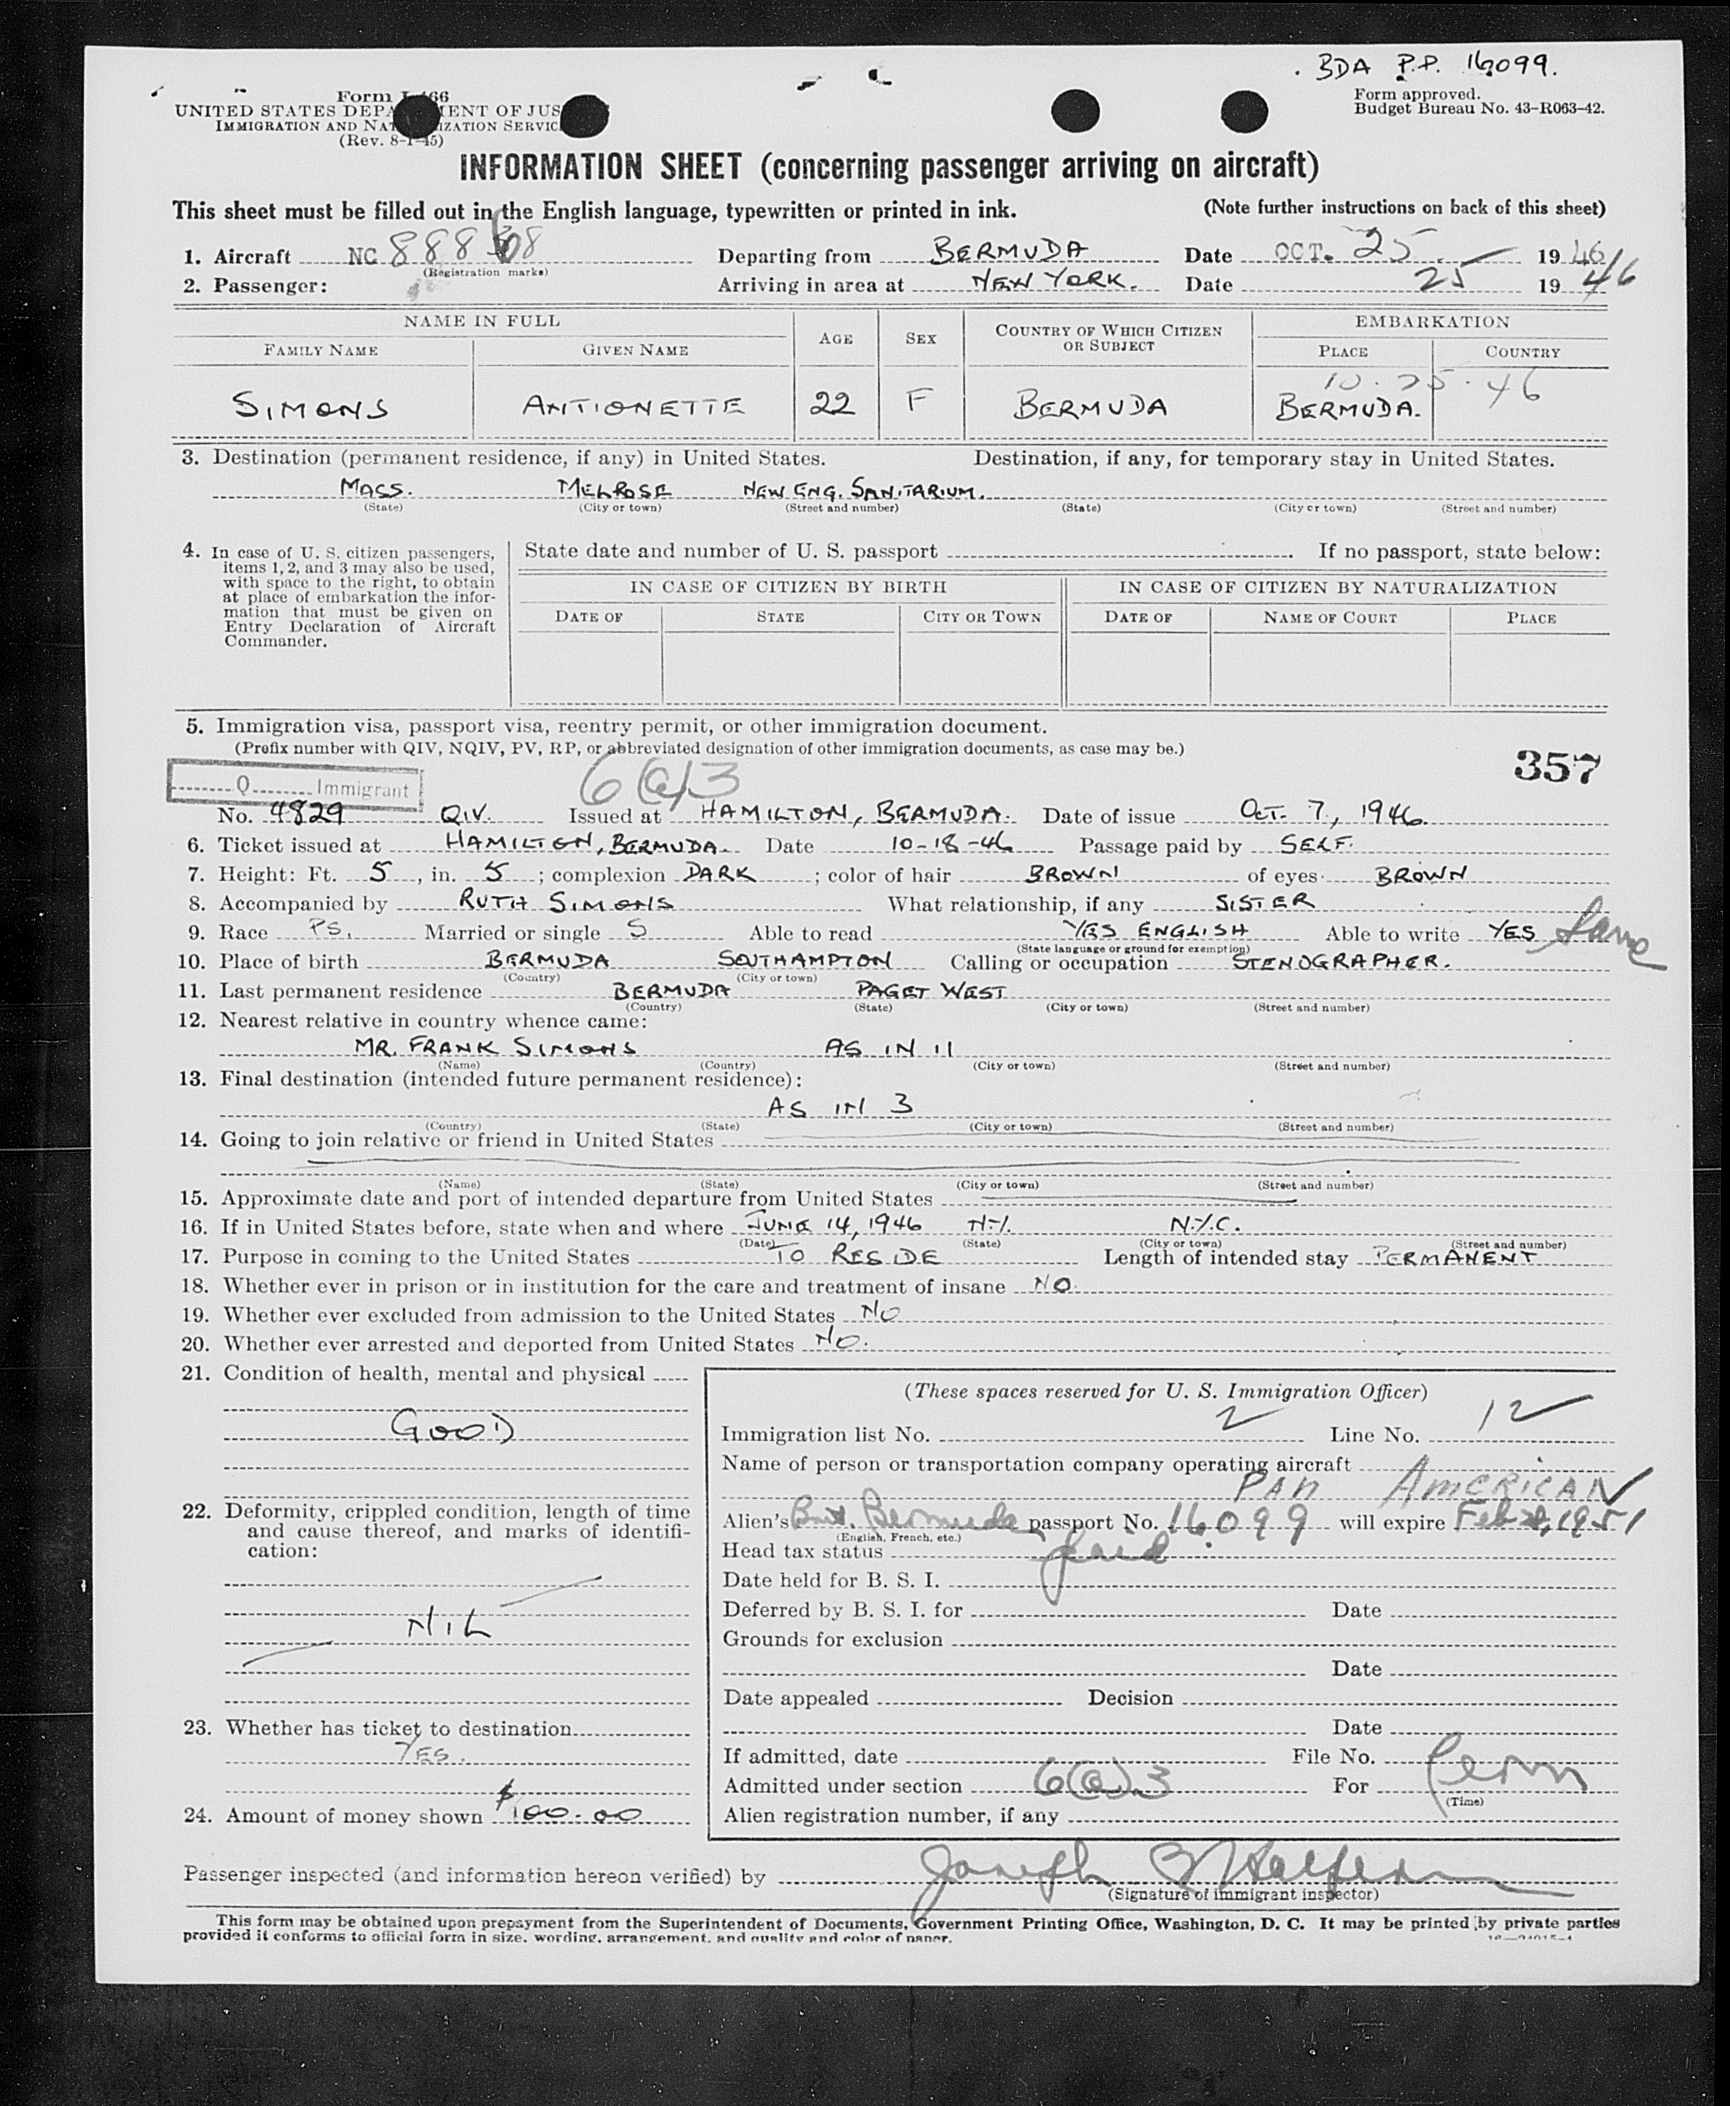 BDA P.P. 16099.
Form I-466
Form approved.
UNITED STATES DEPARTMENT OF JUSTICE
Budget Bureau No. 43-R063-42.
IMMIGRATION AND NATURALIZATION SERVICE
(Rev. 8-1-45)
INFORMATION SHEET (concerning passenger arriving on aircraft)
This sheet must be filled out in the English language, typewritten or printed in ink. (Note further instructions on back of this sheet)
1. Aircraft NC 88868 Departing from BERMUDA Date OCT. 25 1946
(Registration marks)
2. Passenger: Arriving in area at NEW YORK. Date 25 1946
NAME IN FULL AGE SEX COUNTRY OF WHICH CITIZEN OR SUBJECT EMBARKATION
FAMILY NAME GIVEN NAME PLACE COUNTRY
10.25.46
SIMONS ANTIONETTE 22 F BERMUDA BERMUDA.
3. Destination (permanent residence, if any) in United States. Destination, if any, for temporary stay in United States.
MASS. MELROSE NEW ENG. SANITARIUM.
(State) (City or town) (Street and number) (State) (City or town) (Street and number)
4. In case of U. S. citizen passengers,
items 1, 2, and 3 may also be used,
with space to the right, to obtain
at place of embarkation the infor-
mation that must be given on
Entry Declaration of Aircraft
Commander.
State date and number of U. S. passport . If no passport, state below:
IN CASE OF CITIZEN BY BIRTH IN CASE OF CITIZEN BY NATURALIZATION
DATE OF STATE CITY OR TOWN DATE OF NAME OF COURT PLACE
5. Immigration visa, passport visa, reentry permit, or other immigration document.
(Prefix number with QIV, NQIV, PV, RP, or abbreviated designation of other immigration documents, as case may be.)
357
Q Immigrant 6(a)3
No. 4829 QIV. Issued at HAMILTON, BERMUDA. Date of issue OCT. 7, 1946.
6. Ticket issued at HAMILTON, BERMUDA. Date 10-18-46 Passage paid by SELF.
7. Height: Ft. 5, in. 5; complexion DARK; color of hair BROWN of eyes BROWN
8. Accompanied by RUTH SIMONS What relationship, if any SISTER
9. Race PS. Married or single S Able to read YES ENGLISH Able to write YES Same
(State language or ground for exemption)
10. Place of birth BERMUDA SOUTHAMPTON Calling or occupation STENOGRAPHER.
(Country) (City or town)
11. Last permanent residence BERMUDA PAGET WEST
(Country) (State) (City or town) (Street and number)
12. Nearest relative in country whence came:
MR. FRANK SIMONS AS IN 11
(Name) (Country) (City or town) (Street and number)
13. Final destination (intended future permanent residence):
AS IN 3
(Country) (State) (City or town) (Street and number)
14. Going to join relative or friend in United States
(Name) (State) (City or town) (Street and number)
15. Approximate date and port of intended departure from United States
16. If in United States before, state when and where JUNE 14, 1946 N.Y. N.Y.C.
(Date) (State) (City or town) (Street and number)
17. Purpose in coming to the United States TO RESIDE Length of intended stay PERMANENT
18. Whether ever in prison or in institution for the care and treatment of insane NO
19. Whether ever excluded from admission to the United States NO
20. Whether ever arrested and deported from United States NO.
21. Condition of health, mental and physical
GOOD
22. Deformity, crippled condition, length of time
and cause thereof, and marks of identifi-
cation:
NIL
23. Whether has ticket to destination
YES.
24. Amount of money shown $100.00
(These spaces reserved for U. S. Immigration Officer)
Immigration list No. 2 Line No. 12
Name of person or transportation company operating aircraft
PAN AMERICAN
Alien's Brit. Bermuda passport No. 16099 will expire Feb 1951
(English, French, etc.)
Head tax status paid
Date held for B. S. I.
Deferred by B. S. I. for Date
Grounds for exclusion
Date
Date appealed Decision
Date
If admitted, date File No.
Admitted under section 6(a)3 For Perm
(Time)
Alien registration number, if any
Passenger inspected (and information hereon verified) by Joseph
(Signature of immigrant inspector)
This form may be obtained upon prepayment from the Superintendent of Documents, Government Printing Office, Washington, D. C. It may be printed by private parties
provided it conforms to official form in size, wording, arrangement, and quality and color of paper.